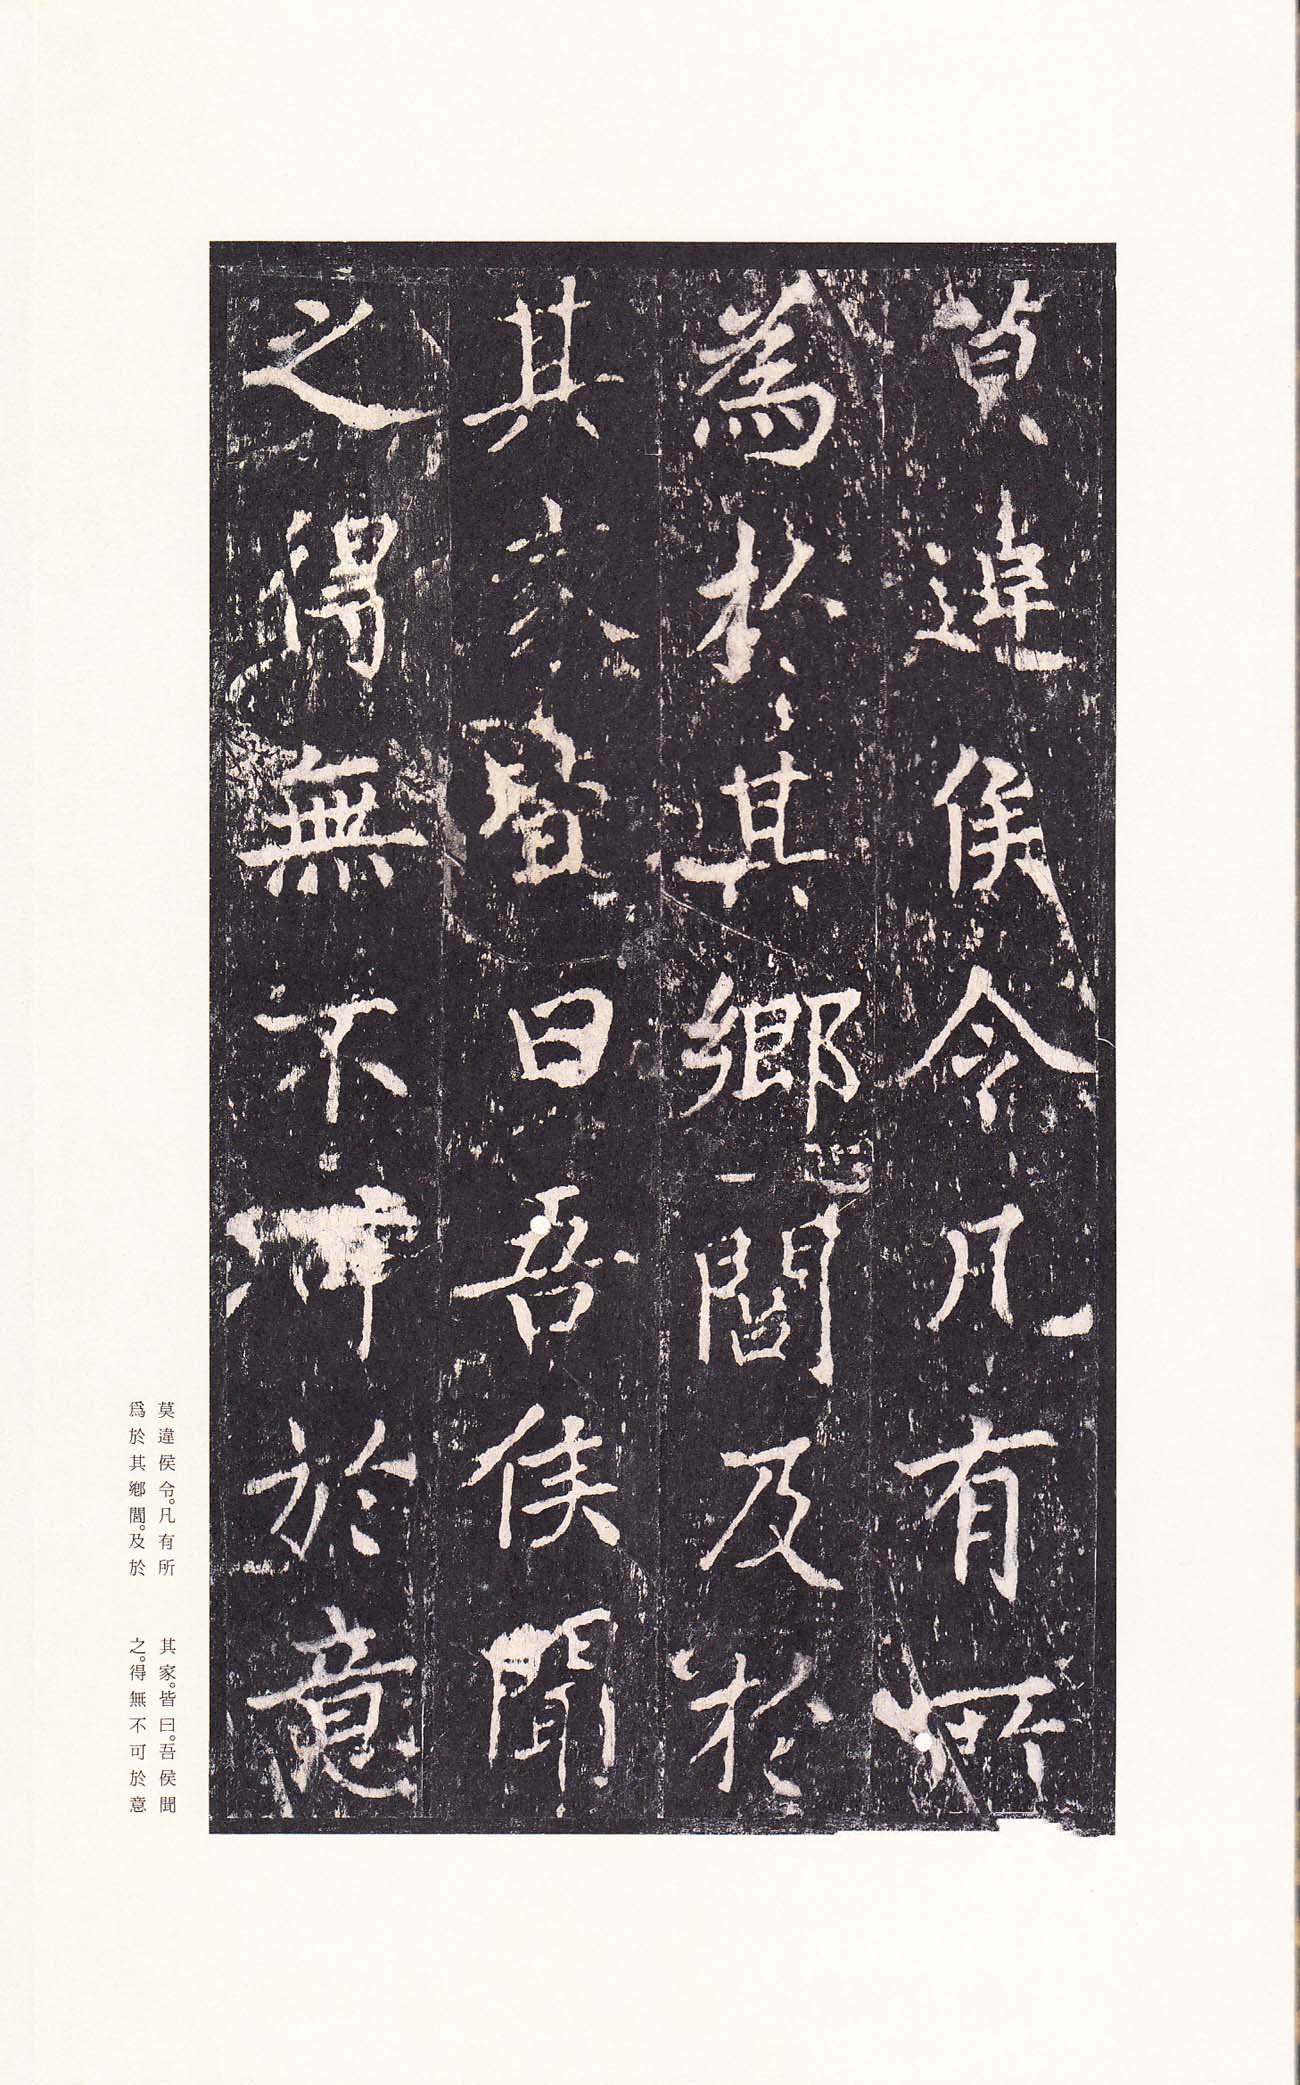 莫違侯令凡有所
為於其鄉閭及於
其家皆曰吾侯聞
之得無不可於意
莫違侯令。凡有所
爲於其鄉閭。及於
其家。皆曰。吾侯聞
之。得無不可於意